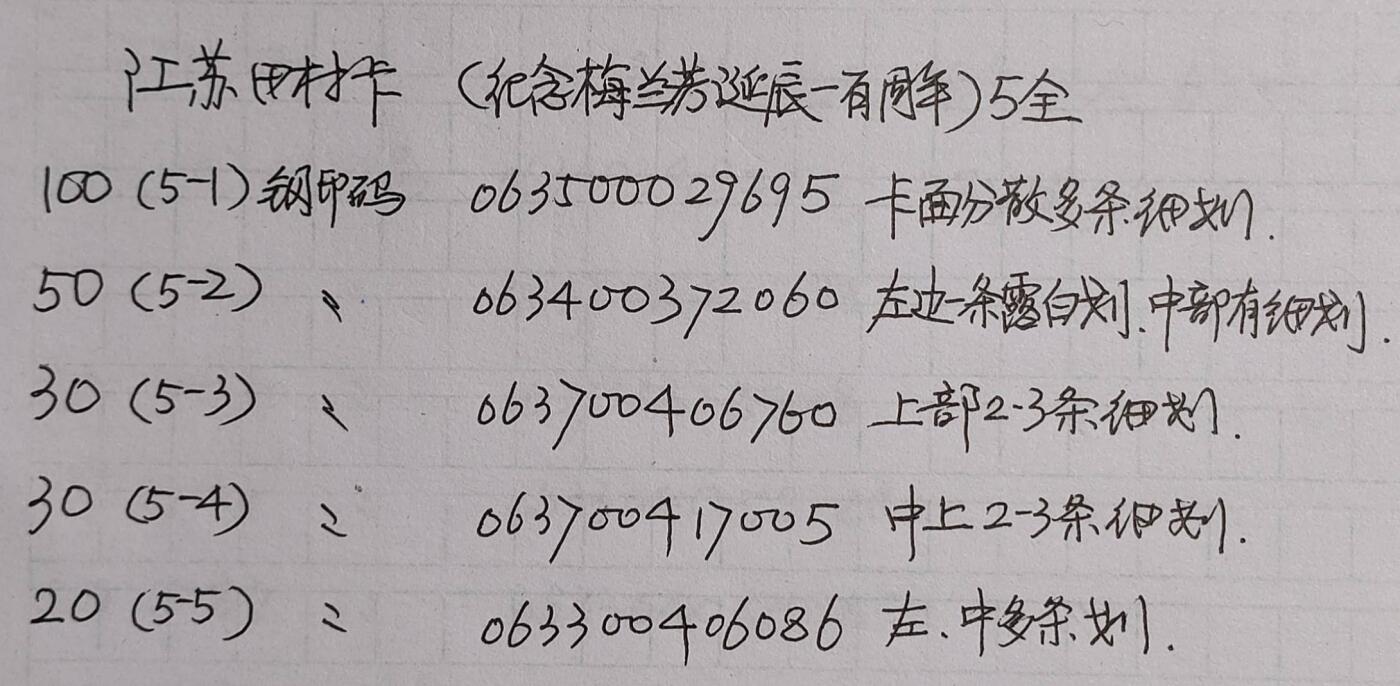 江苏田村卡（纪念梅兰芳诞辰一百周年）5全
100（5-1）钢印码 063500029695 卡面分散多条细划.
50（5-2）〃 063400372060 左边一条露白划.中部有细划.
30（5-3）〃 063700406760 上部2-3条细划.
30（5-4）〃 063700417005 中上2-3条细划.
20（5-5）〃 063300406086 左、中多条划.